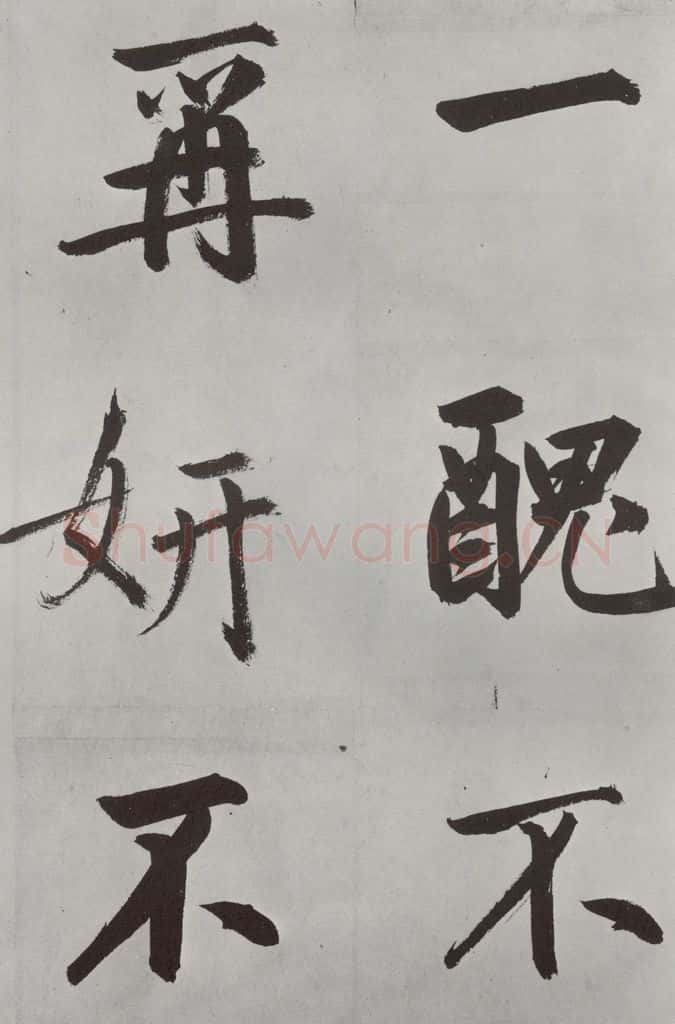 一醜不
再妍不
Shufawang.CN